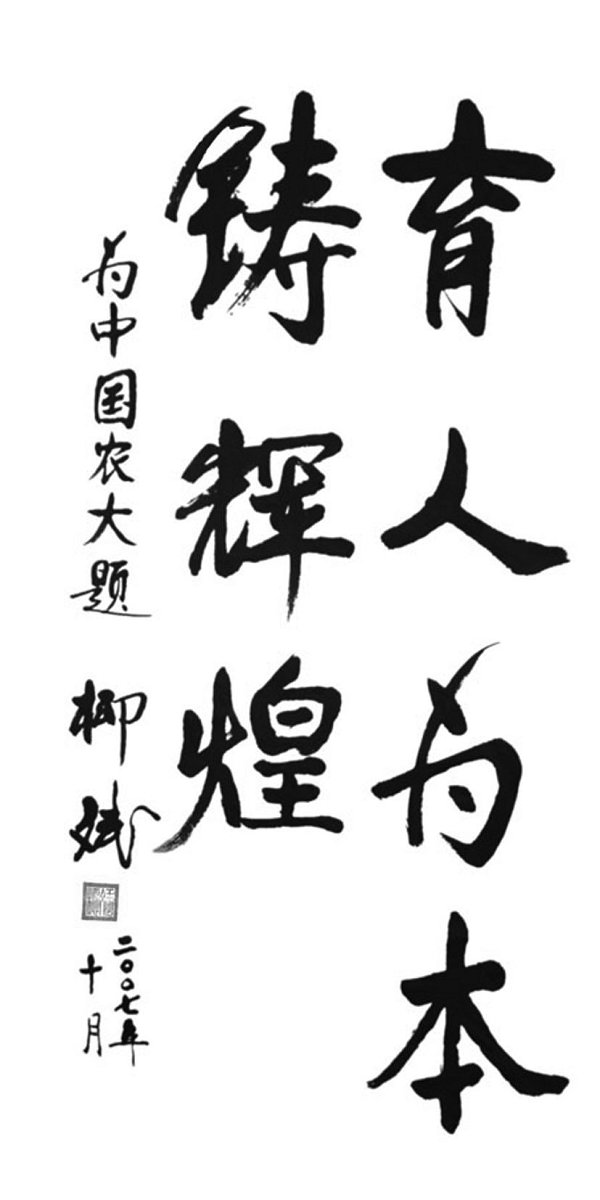 育人为本
铸辉煌
为中国农大题
柳斌
二〇〇七年
十月